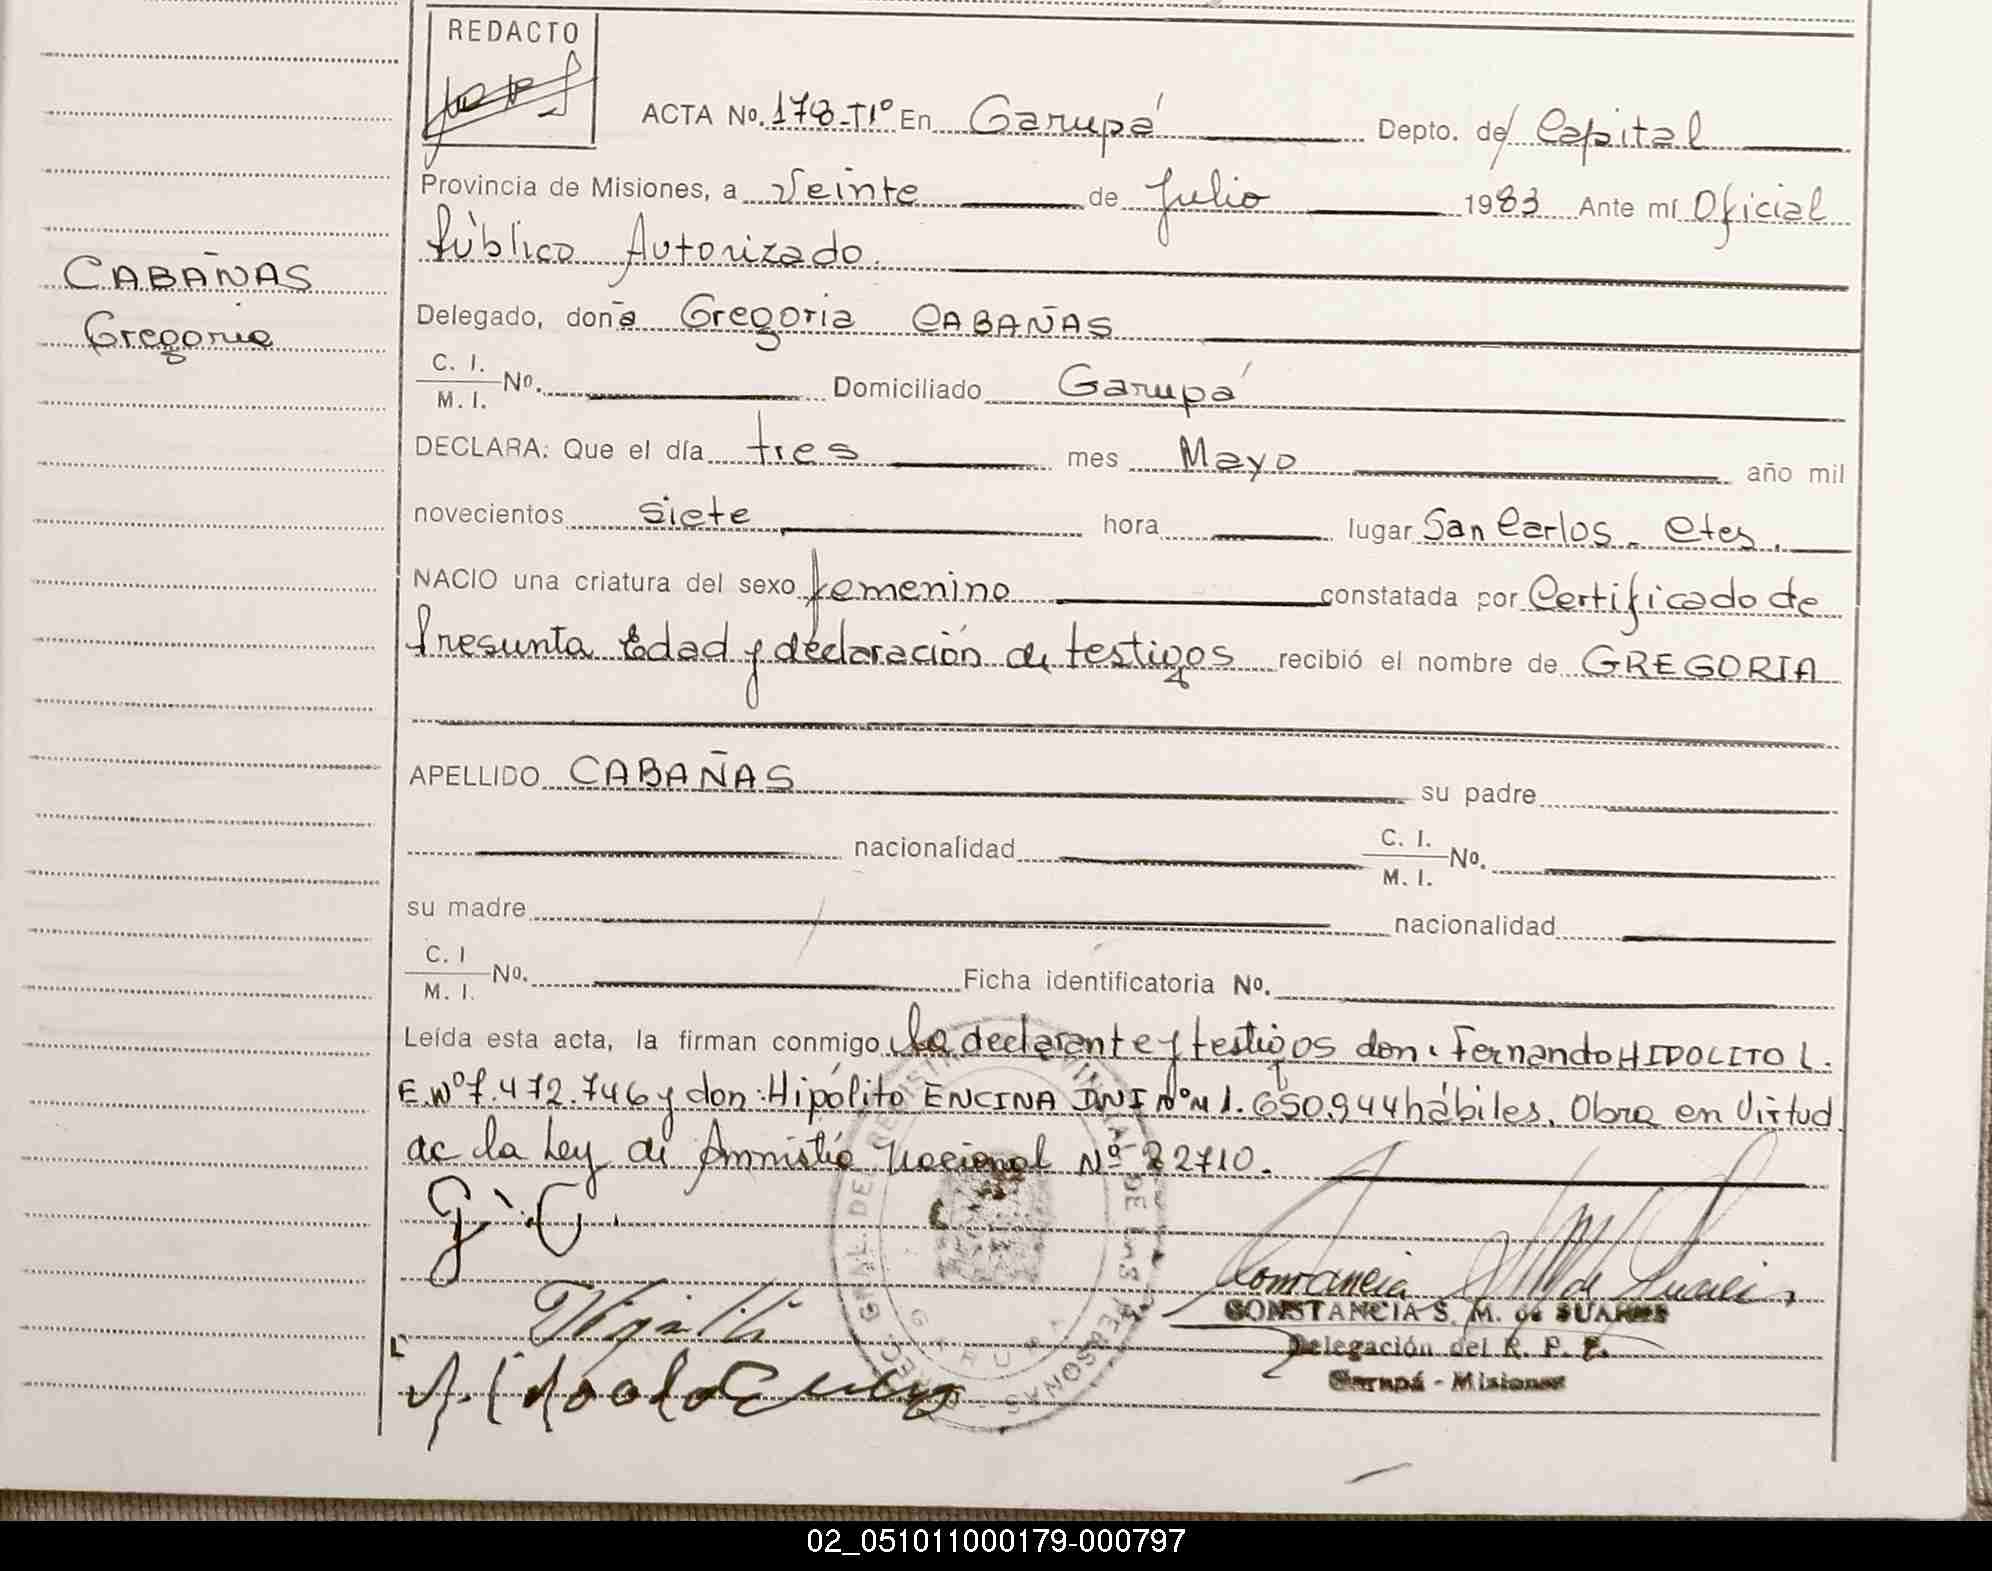 REDACTO
ACTA No. 178-T1º En Garupá Depto. de Capital
Provincia de Misiones, a Veinte de Julio 1983 Ante mí Oficial
Público Autorizado.
CABAÑAS
Gregoria
Delegado, doña Gregoria CABAÑAS
C. I.
M. I. No. Domiciliado Garupá
DECLARA: Que el día tres mes Mayo año mil
novecientos siete hora lugar San Carlos - Ctes.
NACIO una criatura del sexo femenino constatada por Certificado de
Presunta Edad y declaración de testigos recibió el nombre de GREGORIA
APELLIDO CABAÑAS su padre
nacionalidad C. I.
M. I. No.
su madre nacionalidad
C. I
M. I. No. Ficha identificatoria No.
Leída esta acta, la firman conmigo la declarante y testigos don: Fernando HIPOLITO L.
E.Nº 7.472.746 y don: Hipólito ENCINA DNI Nº M 1.650.944 hábiles. Obra en Virtud
de la Ley de Amnistía Nacional Nº 22710.
G. C.
CONSTANCIA S. M. de SUARES
Delegación del R. P. P.
Garupá - Misiones
GARUPA
02_051011000179-000797